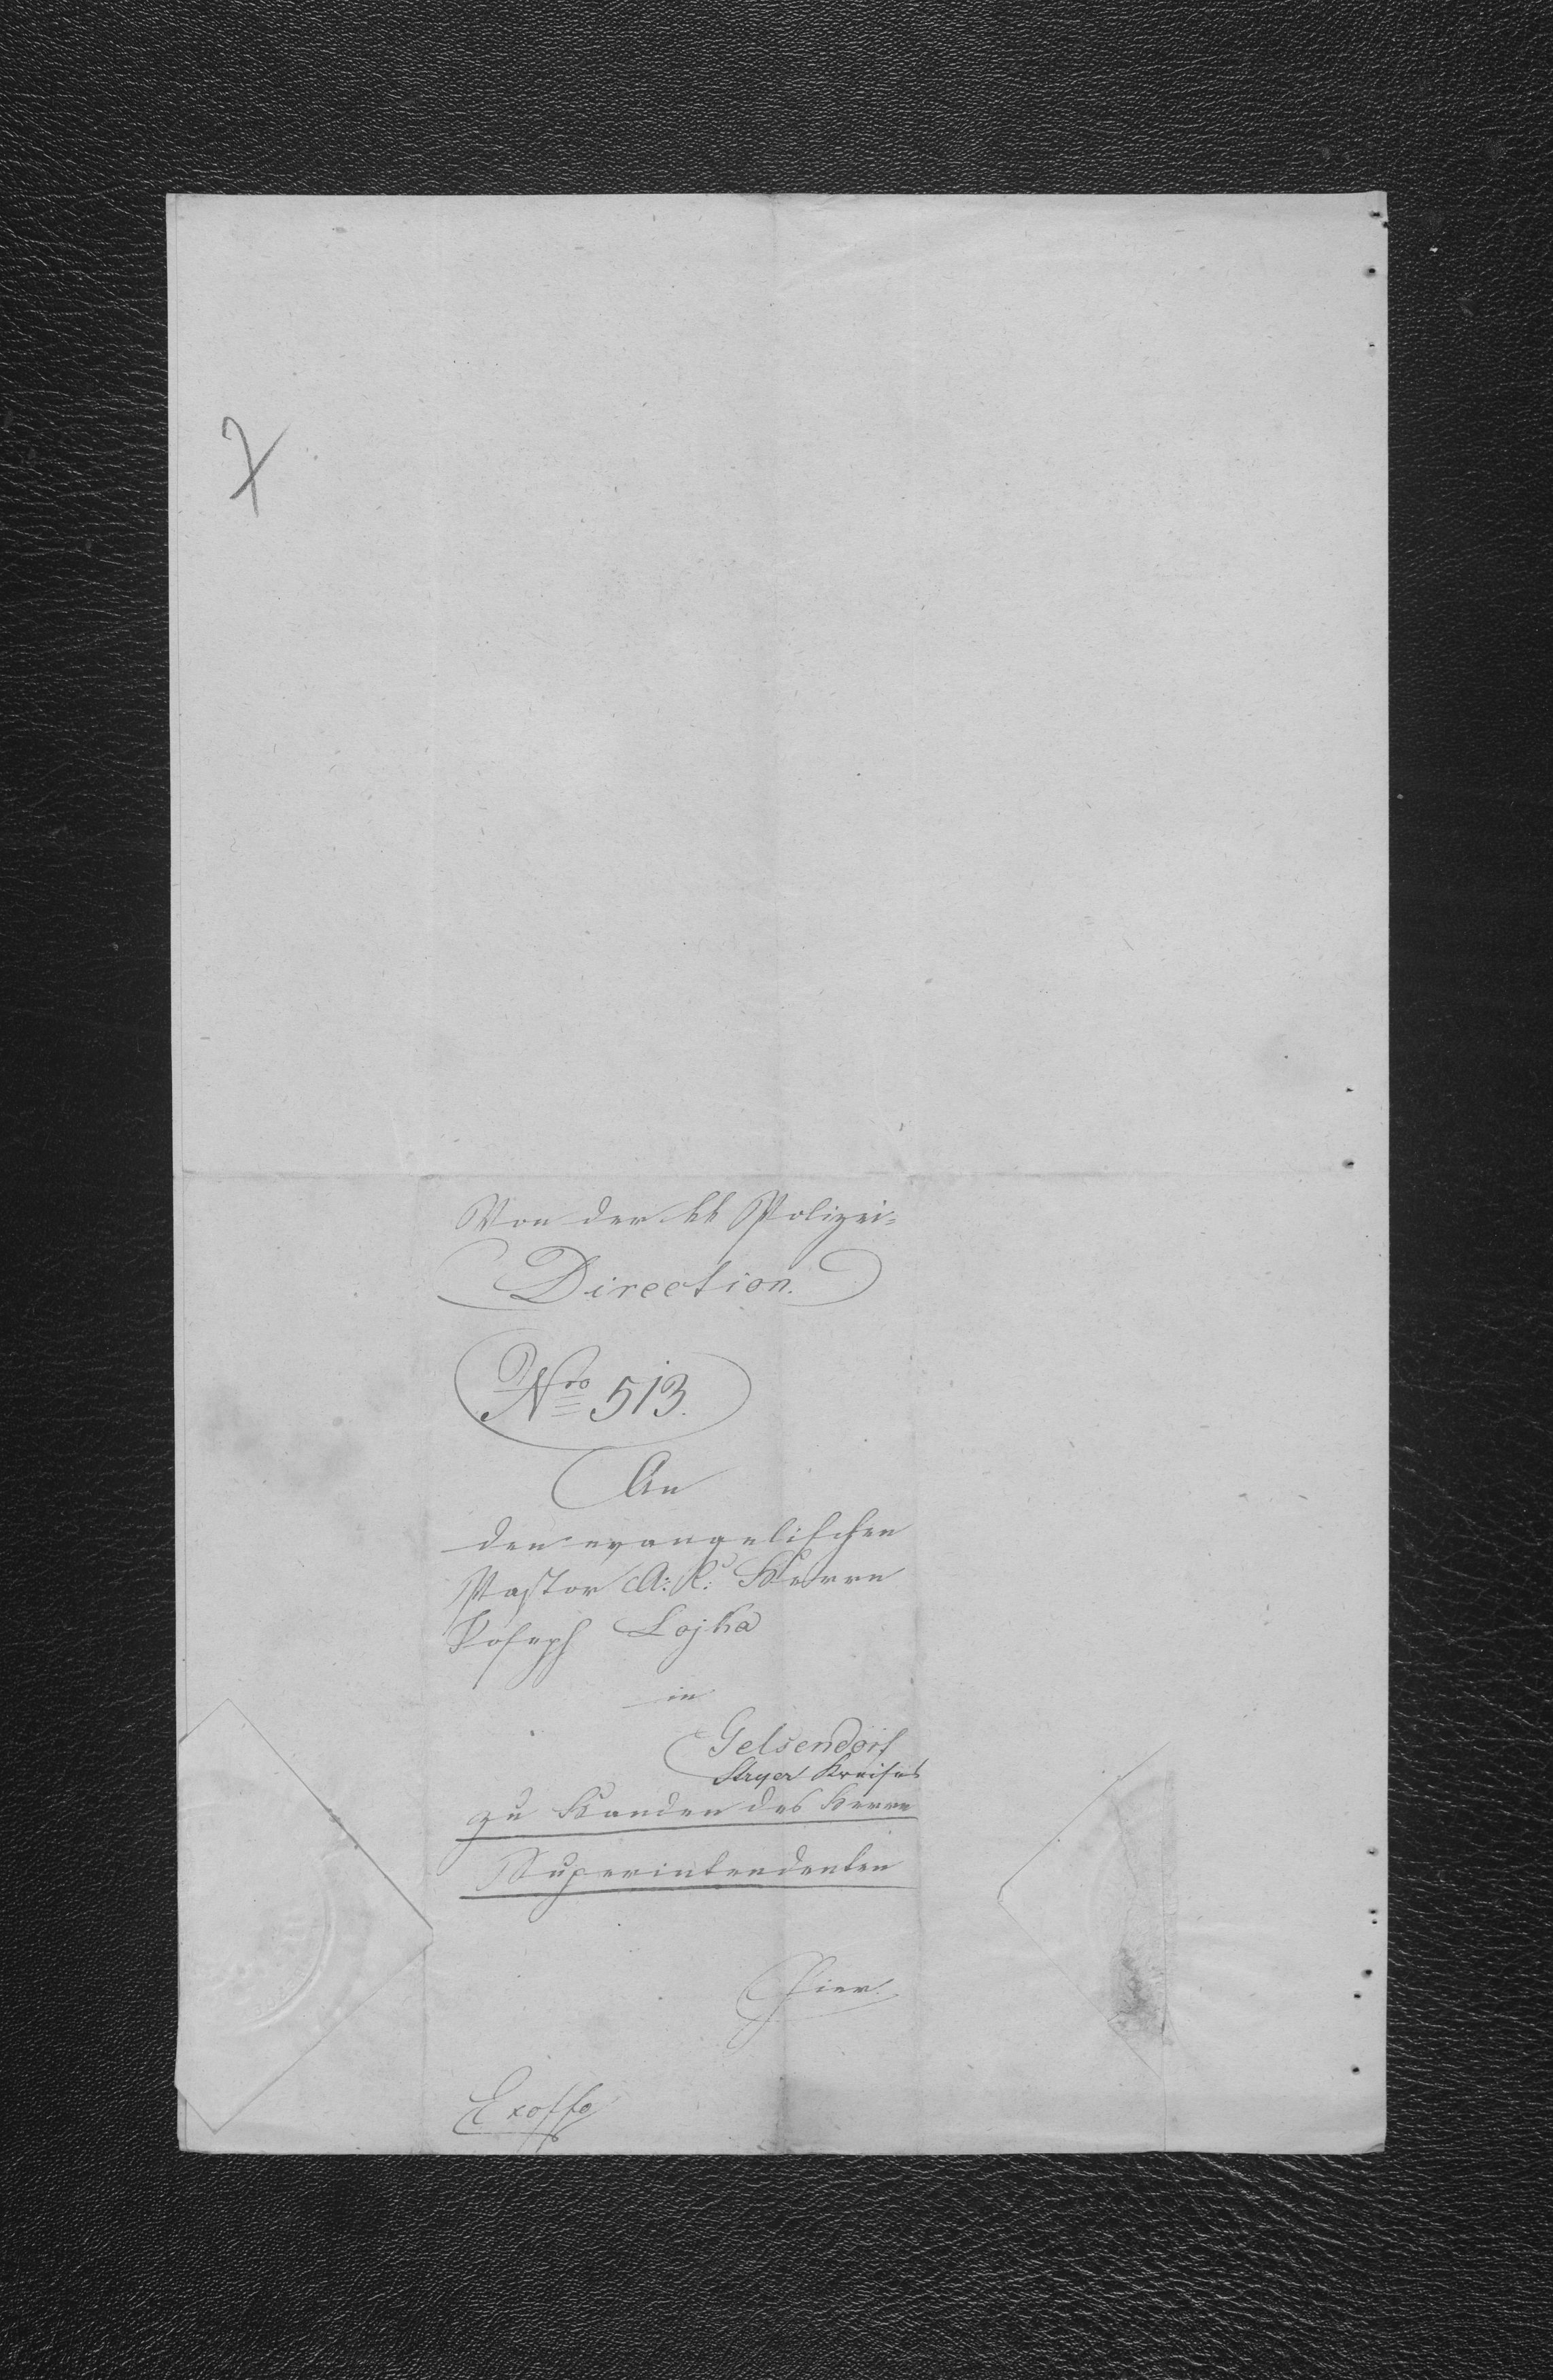 Von der kk Polizei=
Direction.
Nro 513.
An
den evangelischen
Pastor A: C: Herrn
Joseph Lojka
in
Gelsendorf
Stryer Kreises
zu Handen des Herrn
Superintendenten
Hier.
Exoffo